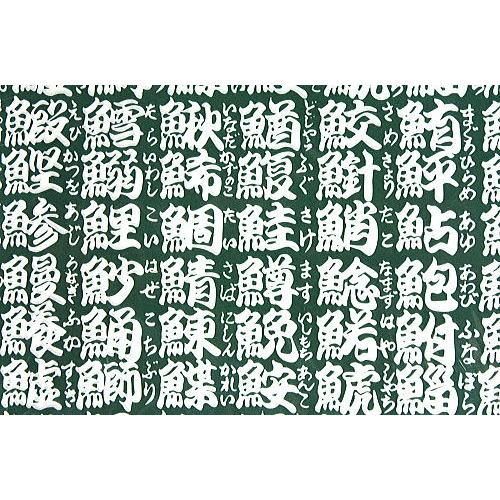 鮪 まぐろ 鮃 ひらめ 鮎 あゆ 鮑 あわび 鮒 ふな 鯔 ぼら
鮫 さめ さより 鮹 たこ 鯰 なまず はや 鯱 しやち
鰌 どじやう 鰒 ふぐ 鮭 さけ 鱒 ます 鮸 いしもち 鮟 あんこ
鰍 いなだ 鯑 かずのこ 鯛 たい 鯖 さば 鰊 にしん 鰈 かれい
鱈 たら 鰯 いわし 鯉 こい 魦 はぜ 鯒 こち 鰤 ぶり
鰕 えび 鰹 かつを 鯵 あじ 鰻 うなぎ 鱶 ふか 鱸 すずき